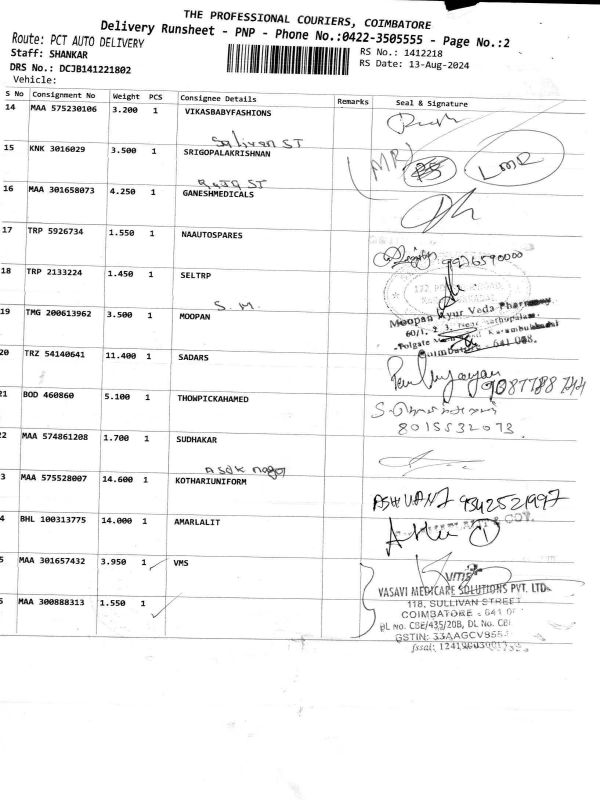 THE PROFESSIONAL COURIERS, COIMBATORE
Delivery Runsheet - PNP - Phone No.:0422-3505555 - Page No.:2
Route: PCT AUTO DELIVERY
Staff: SHANKAR
DRS No.: DCJB141221802
Vehicle:
RS No.: 1412218
RS Date: 13-Aug-2024
S No Consignment No Weight PCS Consignee Details Remarks Seal & Signature
14 MAA 575230106 3.200 1 VIKASBABYFASHIONS
Sulivan ST
15 KNK 3016029 3.500 1 SRIGOPALAKRISHNAN
LMR
Raja ST
16 MAA 301658073 4.250 1 GANESHMEDICALS
17 TRP 5926734 1.550 1 NAAUTOSPARES
9976590000
18 TRP 2133224 1.450 1 SELTRP
S.M.
19 TMG 200613962 3.500 1 MOOPAN
Moopan Ayur Veda Pharmacy
60/1, 2
Coimbatore - 641 008.
20 TRZ 54140641 11.400 1 SADARS
21 BOD 460860 5.100 1 THOWPICKAHAMED
8015532073
22 MAA 574861208 1.700 1 SUDHAKAR
Asok nagar
3 MAA 575528007 14.600 1 KOTHARIUNIFORM
ASHVANI 9342521997
4 BHL 100313775 14.000 1 AMARLALIT
5 MAA 301657432 3.950 1 VMS
vms
VASAVI MEDICARE SOLUTIONS PVT. LTD.
118, SULLIVAN STREET
COIMBATORE - 641 0
DL No. CBE/435/20B, DL No. CB
GSTIN: 33AAGCV855
fssai:
5 MAA 300888313 1.550 1